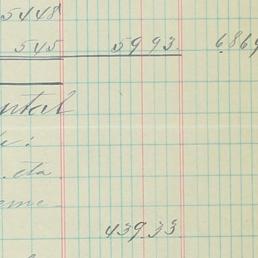 5448
545 5993 6869
ntal
eta
eme
439.33